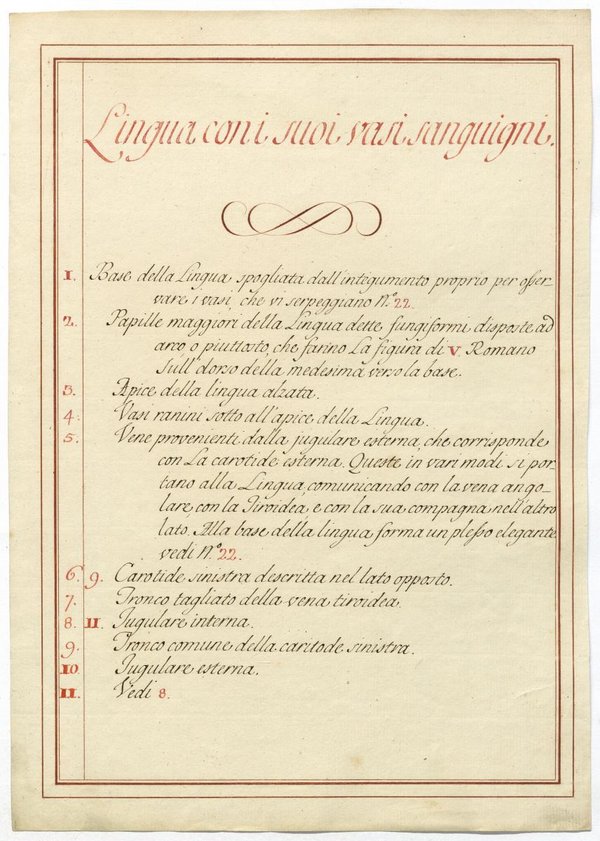 Lingua con i suoi vasi sanguigni.
1. Base della Lingua, spogliata dall'integumento proprio per osser-
vare i vasi, che vi serpeggiano N.º 22.
2. Papille maggiori della Lingua dette fungiformi disposte ad
arco o piuttosto, che farino La figura di V. Romano
Sull dorso della medesima verso la base.
3. Apice della lingua alzata.
4. Vasi ranini sotto all'apice della Lingua.
5. Vene provenienti dalla jugulare esterna, che corrisponde
con La carotide esterna. Queste in vari modi si por-
tano alla Lingua, comunicando con la vena ango-
lare con la Tiroidea, e con la sua compagna nell'altro
lato. Alla base della lingua forma un plesso elegante
vedi N.º 22.
6. 9. Carotide sinistra descritta nel lato opposto.
7. Tronco tagliato della vena tiroidea.
8. 11. Jugulare interna.
9. Tronco comune della caritode sinistra.
10 Jugulare esterna.
11. Vedi 8.